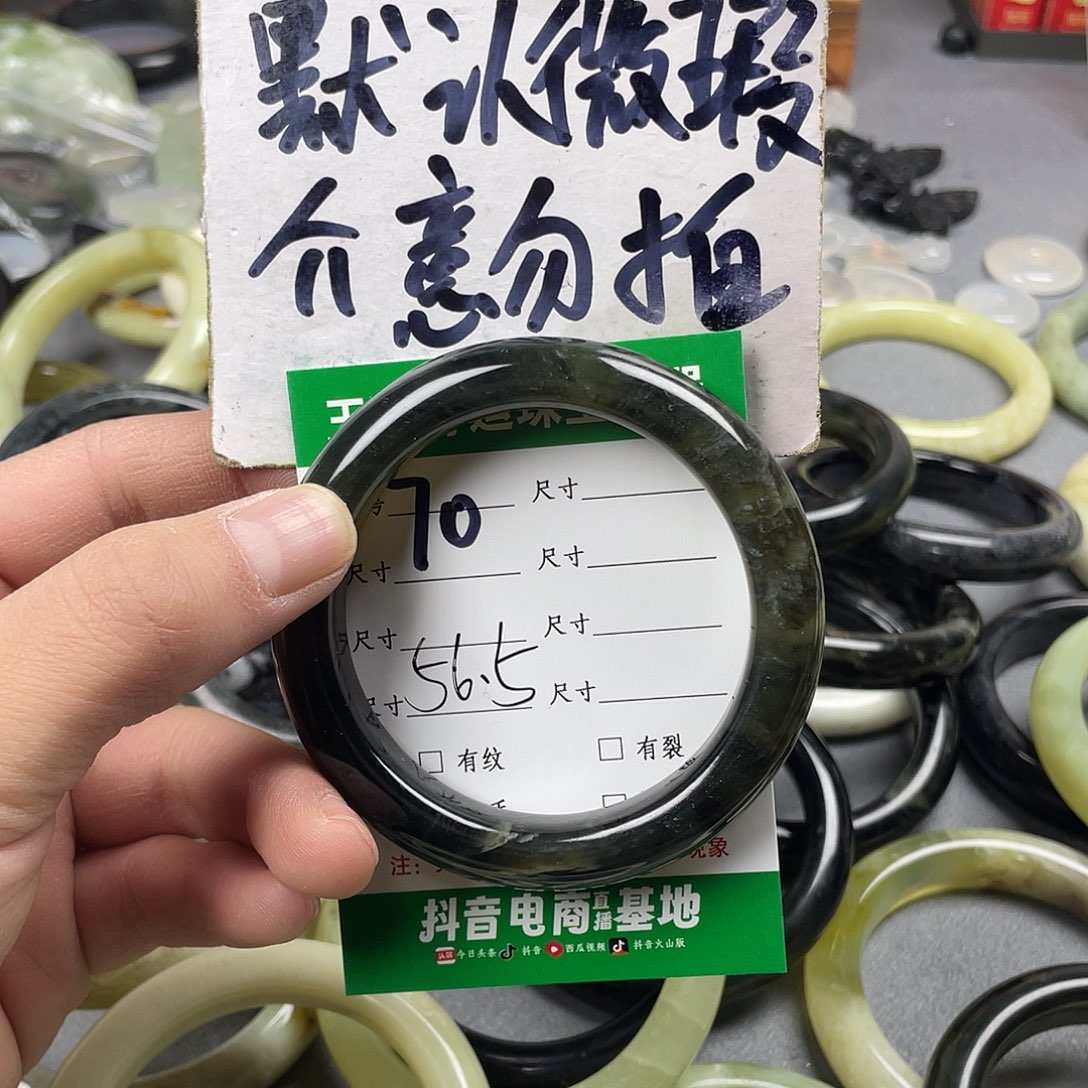 默认微瑕
介意勿拍
70
尺寸
尺寸
尺寸
尺寸
尺寸
尺寸 56.5
尺寸
有纹
有裂
注:
现象
抖音电商直播基地
今日头条 抖音 西瓜视频 抖音火山版